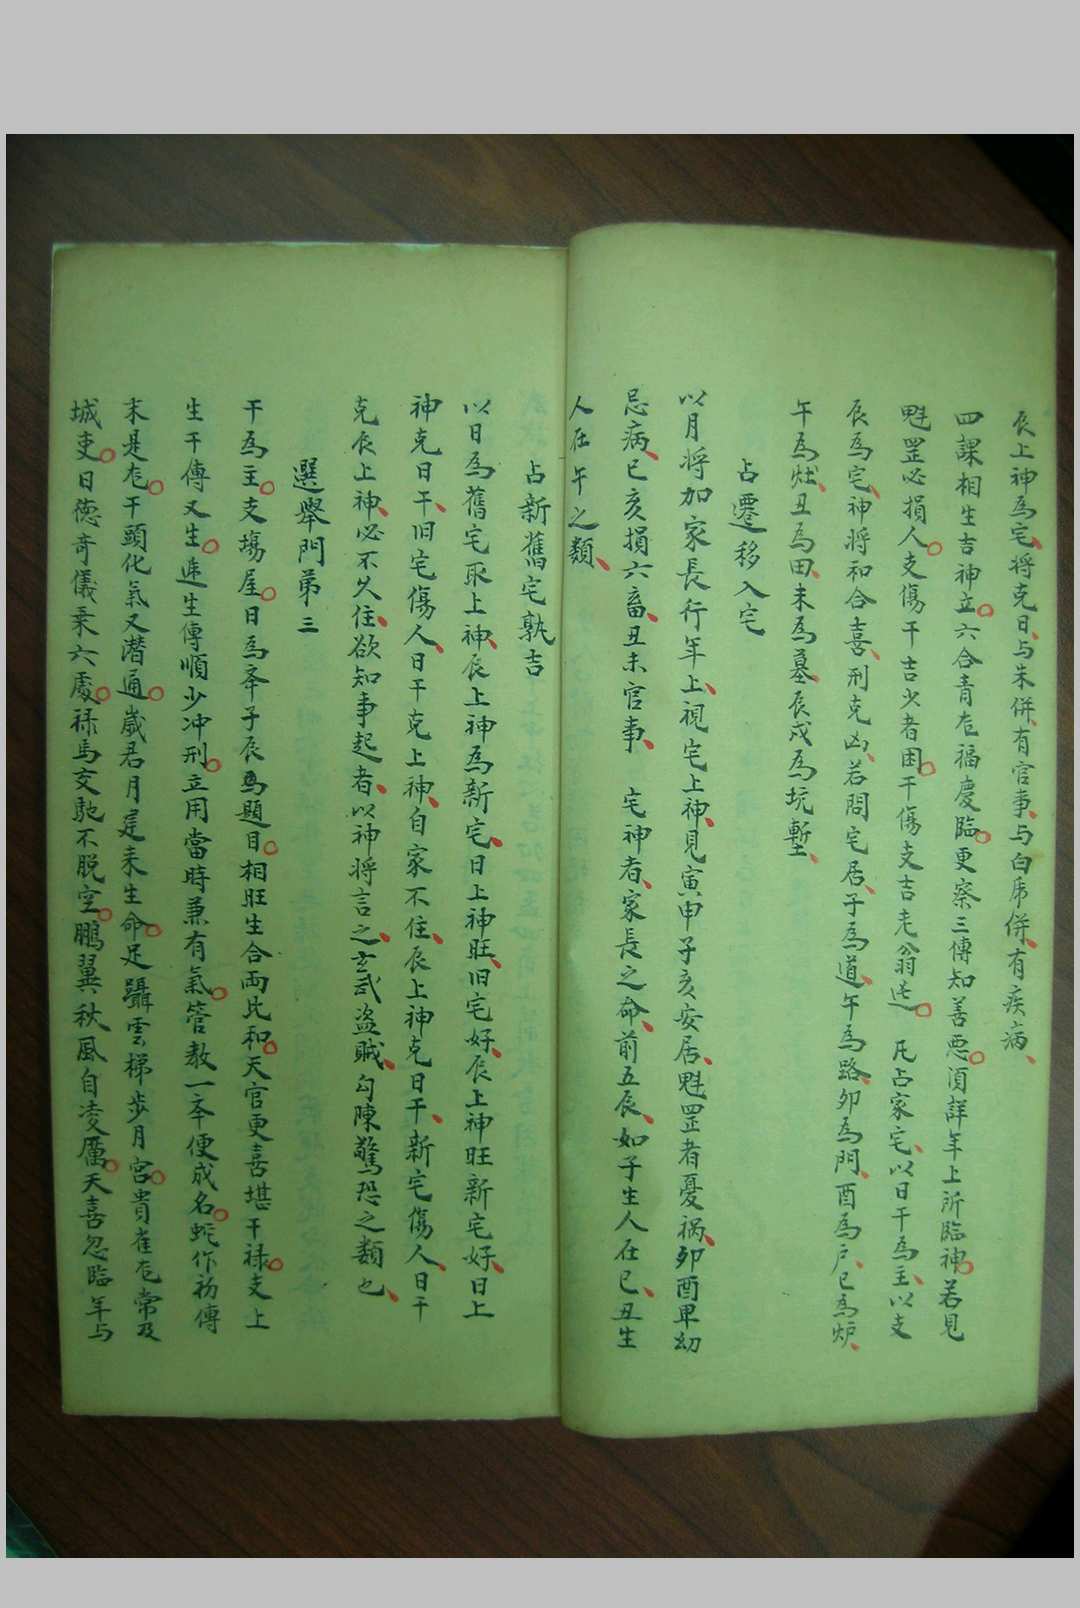 辰上神為宅、將克日、与朱併、有官事、与白虎併、有疾病、
四課相生吉神立。六合青龙福慶臨。更察三傳知善惡。須詳年上所臨神。若見
魁罡必損人。支傷干吉少者困。干傷支吉老翁迍。 凡占家宅、以日干為主、以支
辰為宅、神將和合喜、刑克凶、若問宅居、子為道、午為路、卯為門、酉為户、巳為炉、
午為灶、丑為田、未為墓、辰戌為坑塹、
占遷移入宅
以月將加家長行年上、視宅上神、見寅申子亥安居、魁罡者憂禍、卯酉卑幼
忌病、巳亥損六畜、丑未官事、 宅神者、家長之命前五辰、如子生人在巳、丑生
人在午之類、
占新舊宅孰吉
以日為舊宅取上神、辰上神為新宅、日上神旺、旧宅好、辰上神旺新宅好、日上
神克日干、旧宅傷人、日干克上神、自家不住、辰上神克日干、新宅傷人、日干
克辰上神、必不久住、欲知事起者、以神將言之、玄武盜賊、勾陳驚恐之類也、
選舉門苐三
干為主。支場屋。日為夲子辰為題目。相旺生合両比和。天官更喜堪干禄。支上
生干傳又生。连生傳順少冲刑。立用當時兼有氣。管教一夲便成名。蛇作初傳
末是龙。干頭化氣又潛通。嵗君月建来生命。足躡雲梯步月宮。貴雀龙常及
城吏。日徳竒儀乗六處。禄馬交馳不脱空。鵬翼秋風自凌厲。天喜忽臨年与